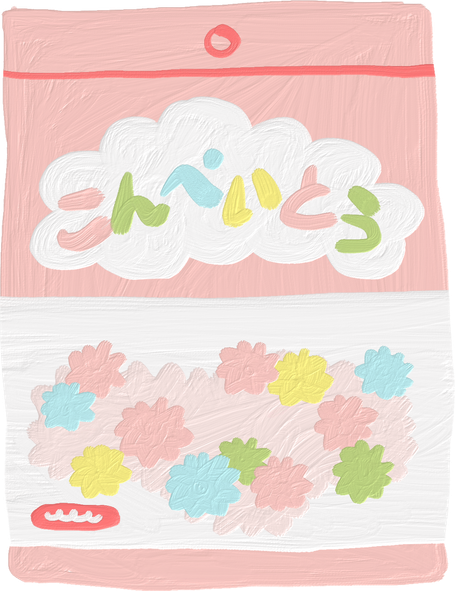 こんぺいとう